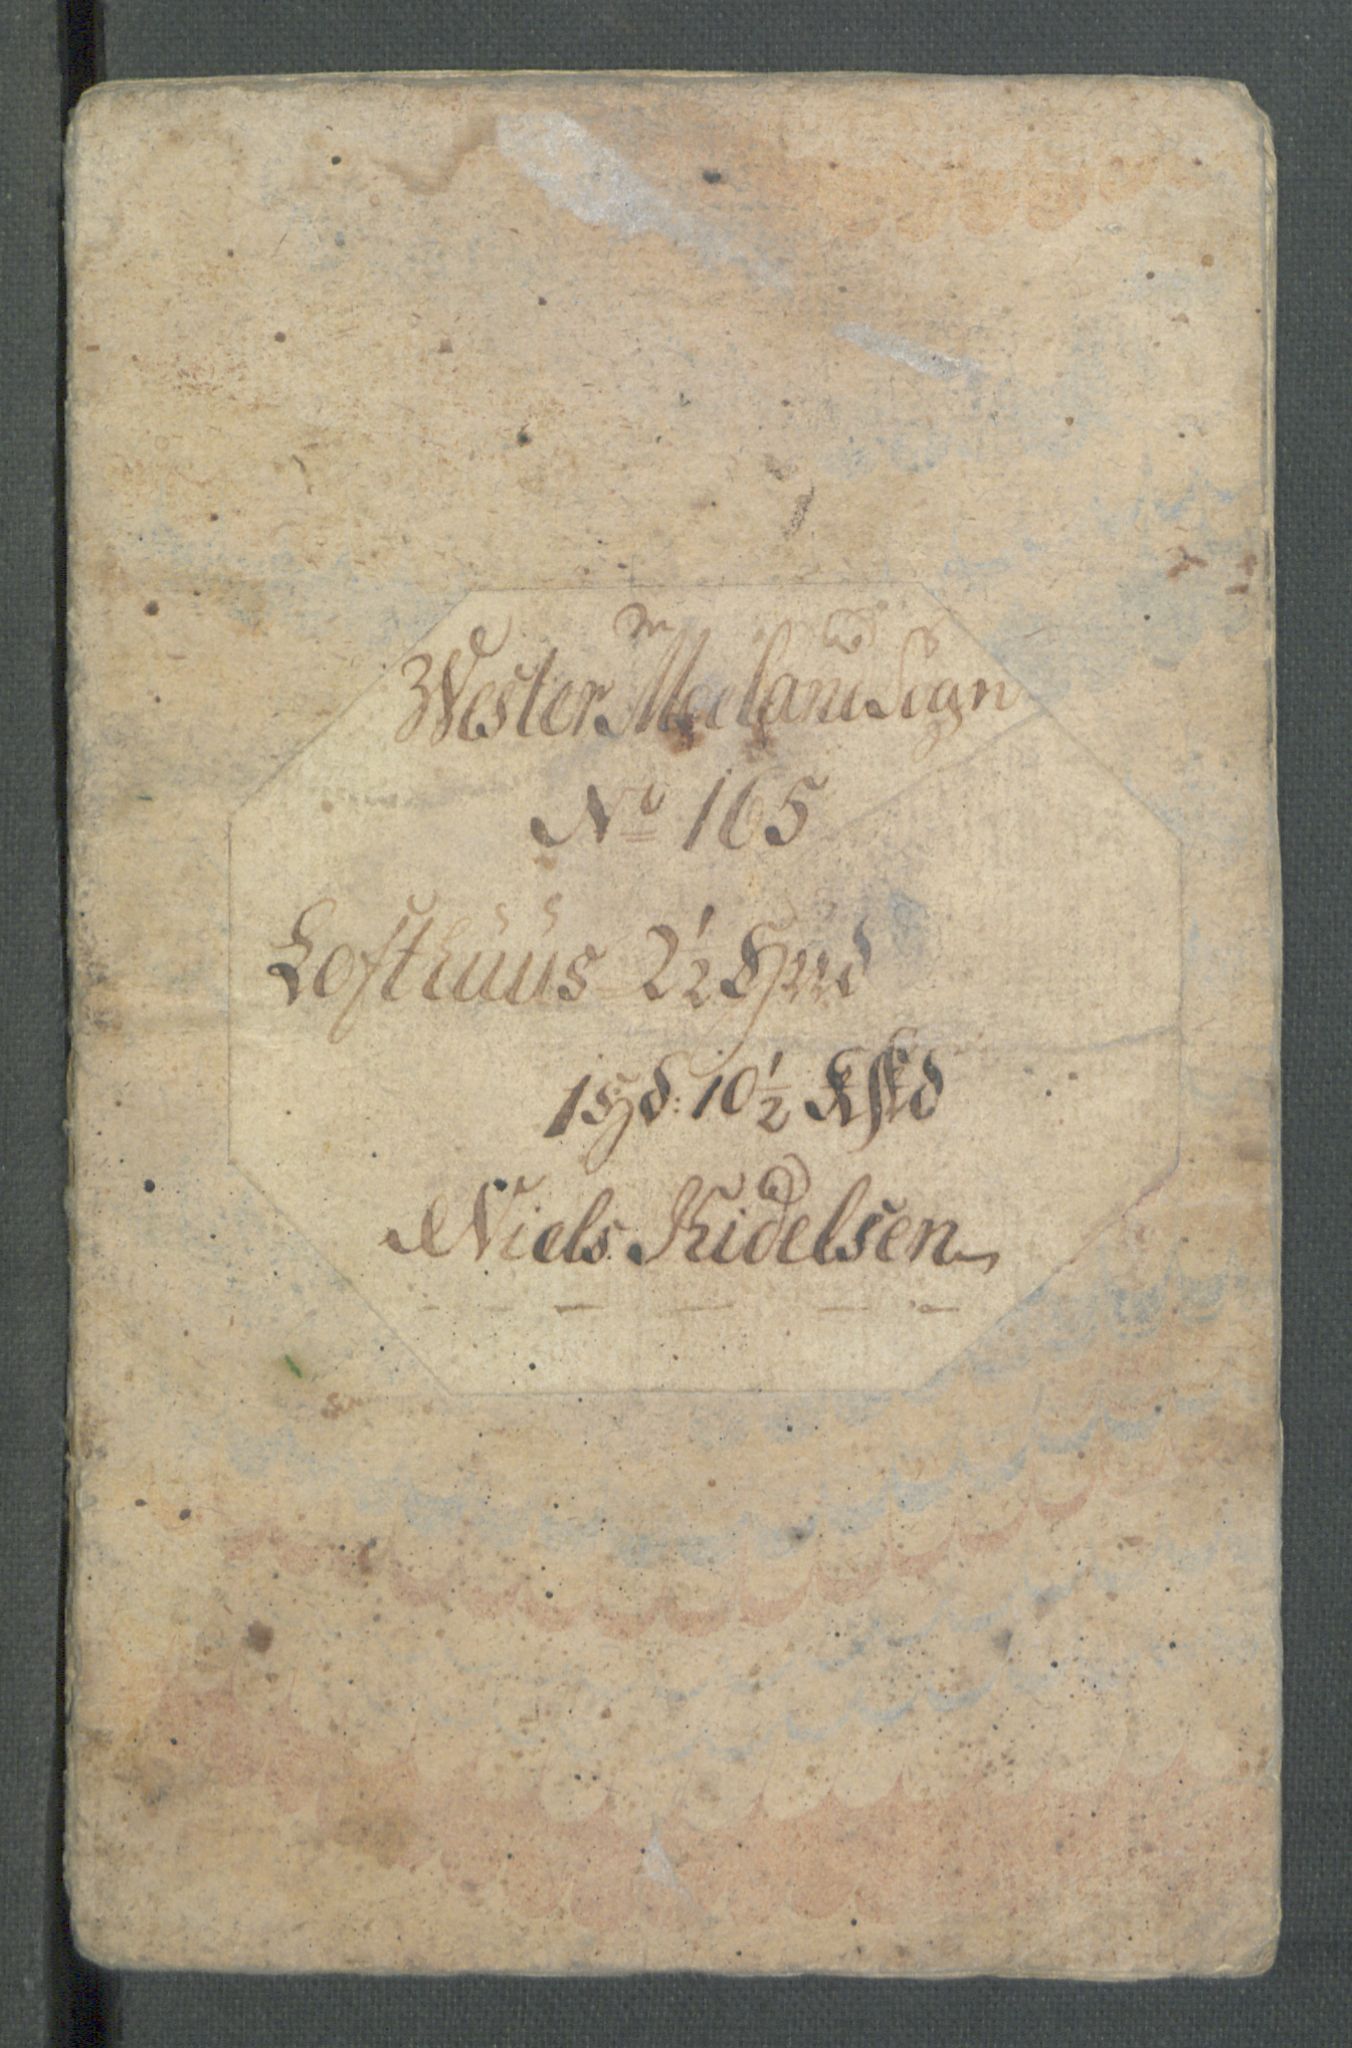 Wester Moeland Sogn
No 165
Lofthuus 2½ Hud
1 Hd: 10½ Kſkd
Niels Kidelsen